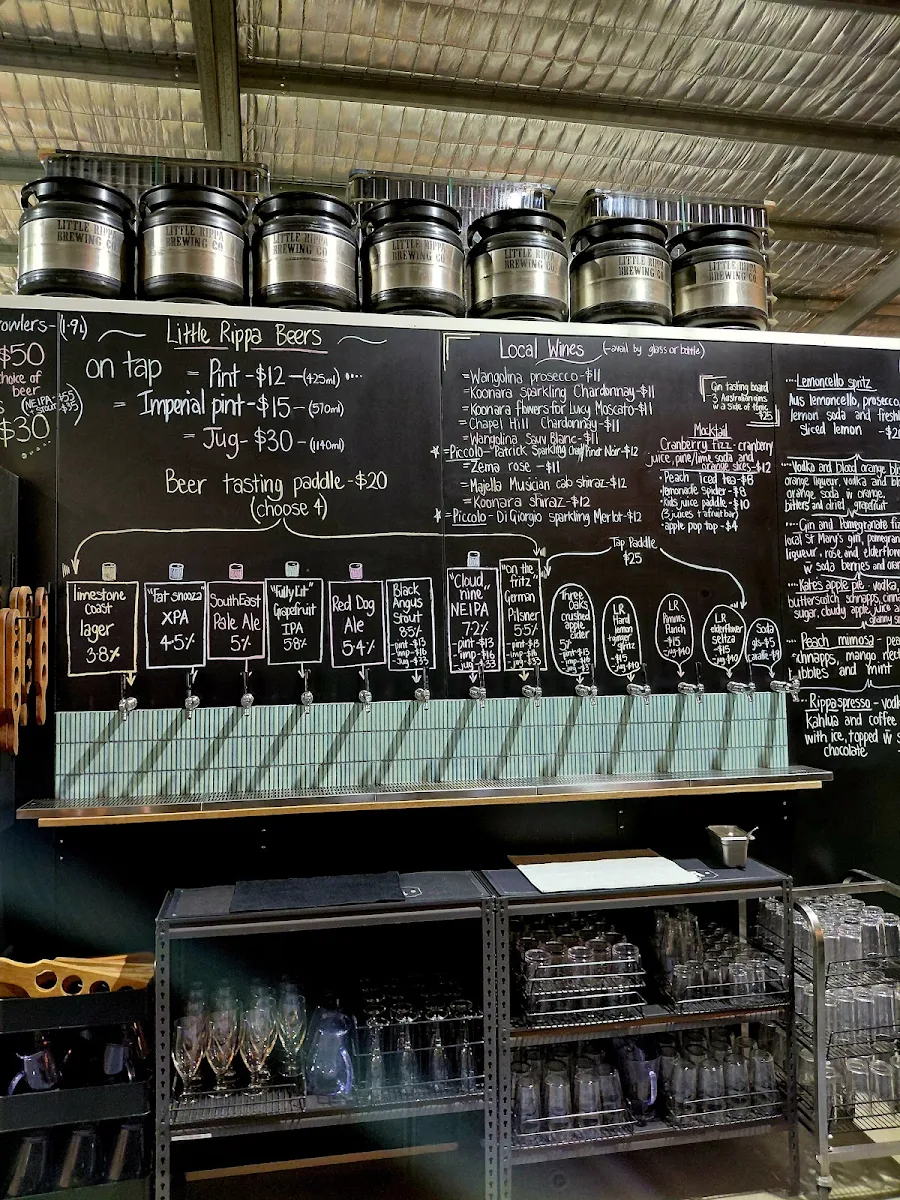 LITTLE RIPPA
BREWING CO
LITTLE RIPPA
BREWING CO
LITTLE RIPPA
BREWING CO
LITTLE RIPPA
BREWING CO
LITTLE RIPPA
BREWING CO
LITTLE RIPPA
BREWING CO
LITTLE RIPPA
BREWING CO
rowlers - (1.9L)
$50
choice of
beer
$30
Little Rippa Beers
on tap = Pint - $12 - (425ml)
= Imperial pint - $15 - (570ml)
= Jug - $30 - (1140ml)
Beer tasting paddle - $20
(choose 4)
limestone
coast
lager
3.8%
"Fat Snooza"
XPA
4.5%
SouthEast
Pale Ale
5%
"Fully Lit"
Grapefruit
IPA
5.8%
Red Dog
Ale
5.4%
Black
Angus
Stout
8.5%
- pint - $13
- imp - $16
- Jug - $33
"Cloud
nine"
NEIPA
7.2%
- pint - $13
- imp - $16
- Jug - $33
"on the
fritz"
German
Pilsner
5.5%
Local Wines (-avail by glass or bottle)
= Wangolina prosecco - $11
= Koonara sparkling Chardonnay - $11
= Koonara flowers for Lucy Moscato - $11
= Chapel Hill Chardonnay - $11
= Wangolina Sauv Blanc - $11
= Piccolo - Patrick Sparkling Chard/Pinot Noir - $12
= Zema rose - $11
= Majella Musician cab shiraz - $12
= Koonara shiraz - $12
= Piccolo - DiGiorgio sparkling Merlot - $12
Gin tasting board
- 3 Australian gins
w a side of tonic
$25
Mocktail
Cranberry fizz - cranberry
juice, pine/lime soda and
orange slices - $12
• Peach iced tea - $8
• lemonade spider - $8
• kids juice paddle - $10
(3 juices + a fruit bar)
• apple pop top - $4
Tap Paddle
$25
Three
Oaks
crushed
apple
cider
LR
Hard
lemon
+ ginger
spritz
- $15
- Jug - $40
LR
Pimms
Punch
- $15
- Jug - $40
LR
elderflower
spritza
- $15
- Jug - $40
Soda
gls - $3
carafe - $9
Lemoncello spritz
lemoncello, prosecco,
lemon soda and fresh
sliced lemon
Vodka and blood orange
orange liqueur, vodka and
orange soda w orange,
bitters and dried grapefruit
Gin and Pomegranate
local St Mary's gin, pomegran
liqueur, rose and elderflower
soda w berries and
Kates apple pie - vodka,
butterscotch schnapps,
sugar, cloudy apple juice
Peach mimosa -
schnapps, mango nect
and mint
Rippaspresso - vodk
kahlua and coffee
with ice, topped w
chocolate